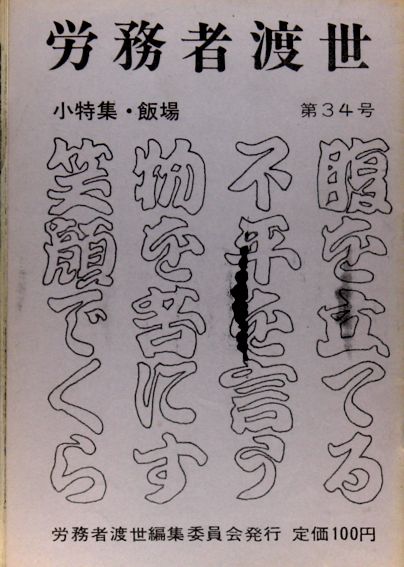 労務者渡世
小特集・飯場
第34号
腹を立てる
不平を言う
物を苦にす
笑顔でくら
労務者渡世編集委員会発行 定価100円